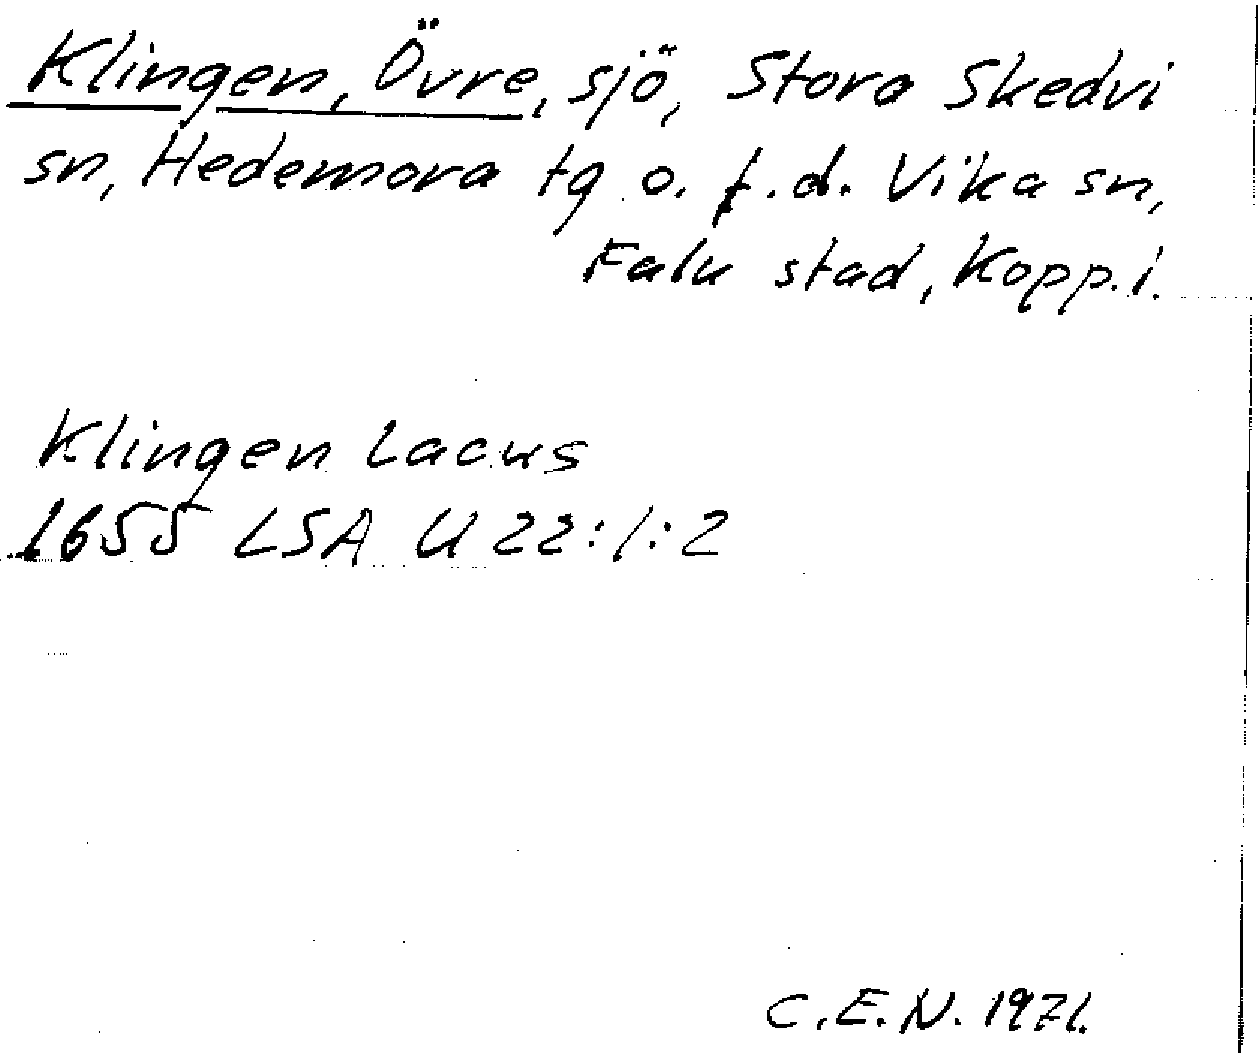 Klingen, Övre, sjö, Stora Skedvi
sn, Hedemora tg o. f.d. Vika sn,
Falu stad, Kopp. l.
Klingen Lacus
1655 LSA U 22:1:2
C.E.N. 1971.